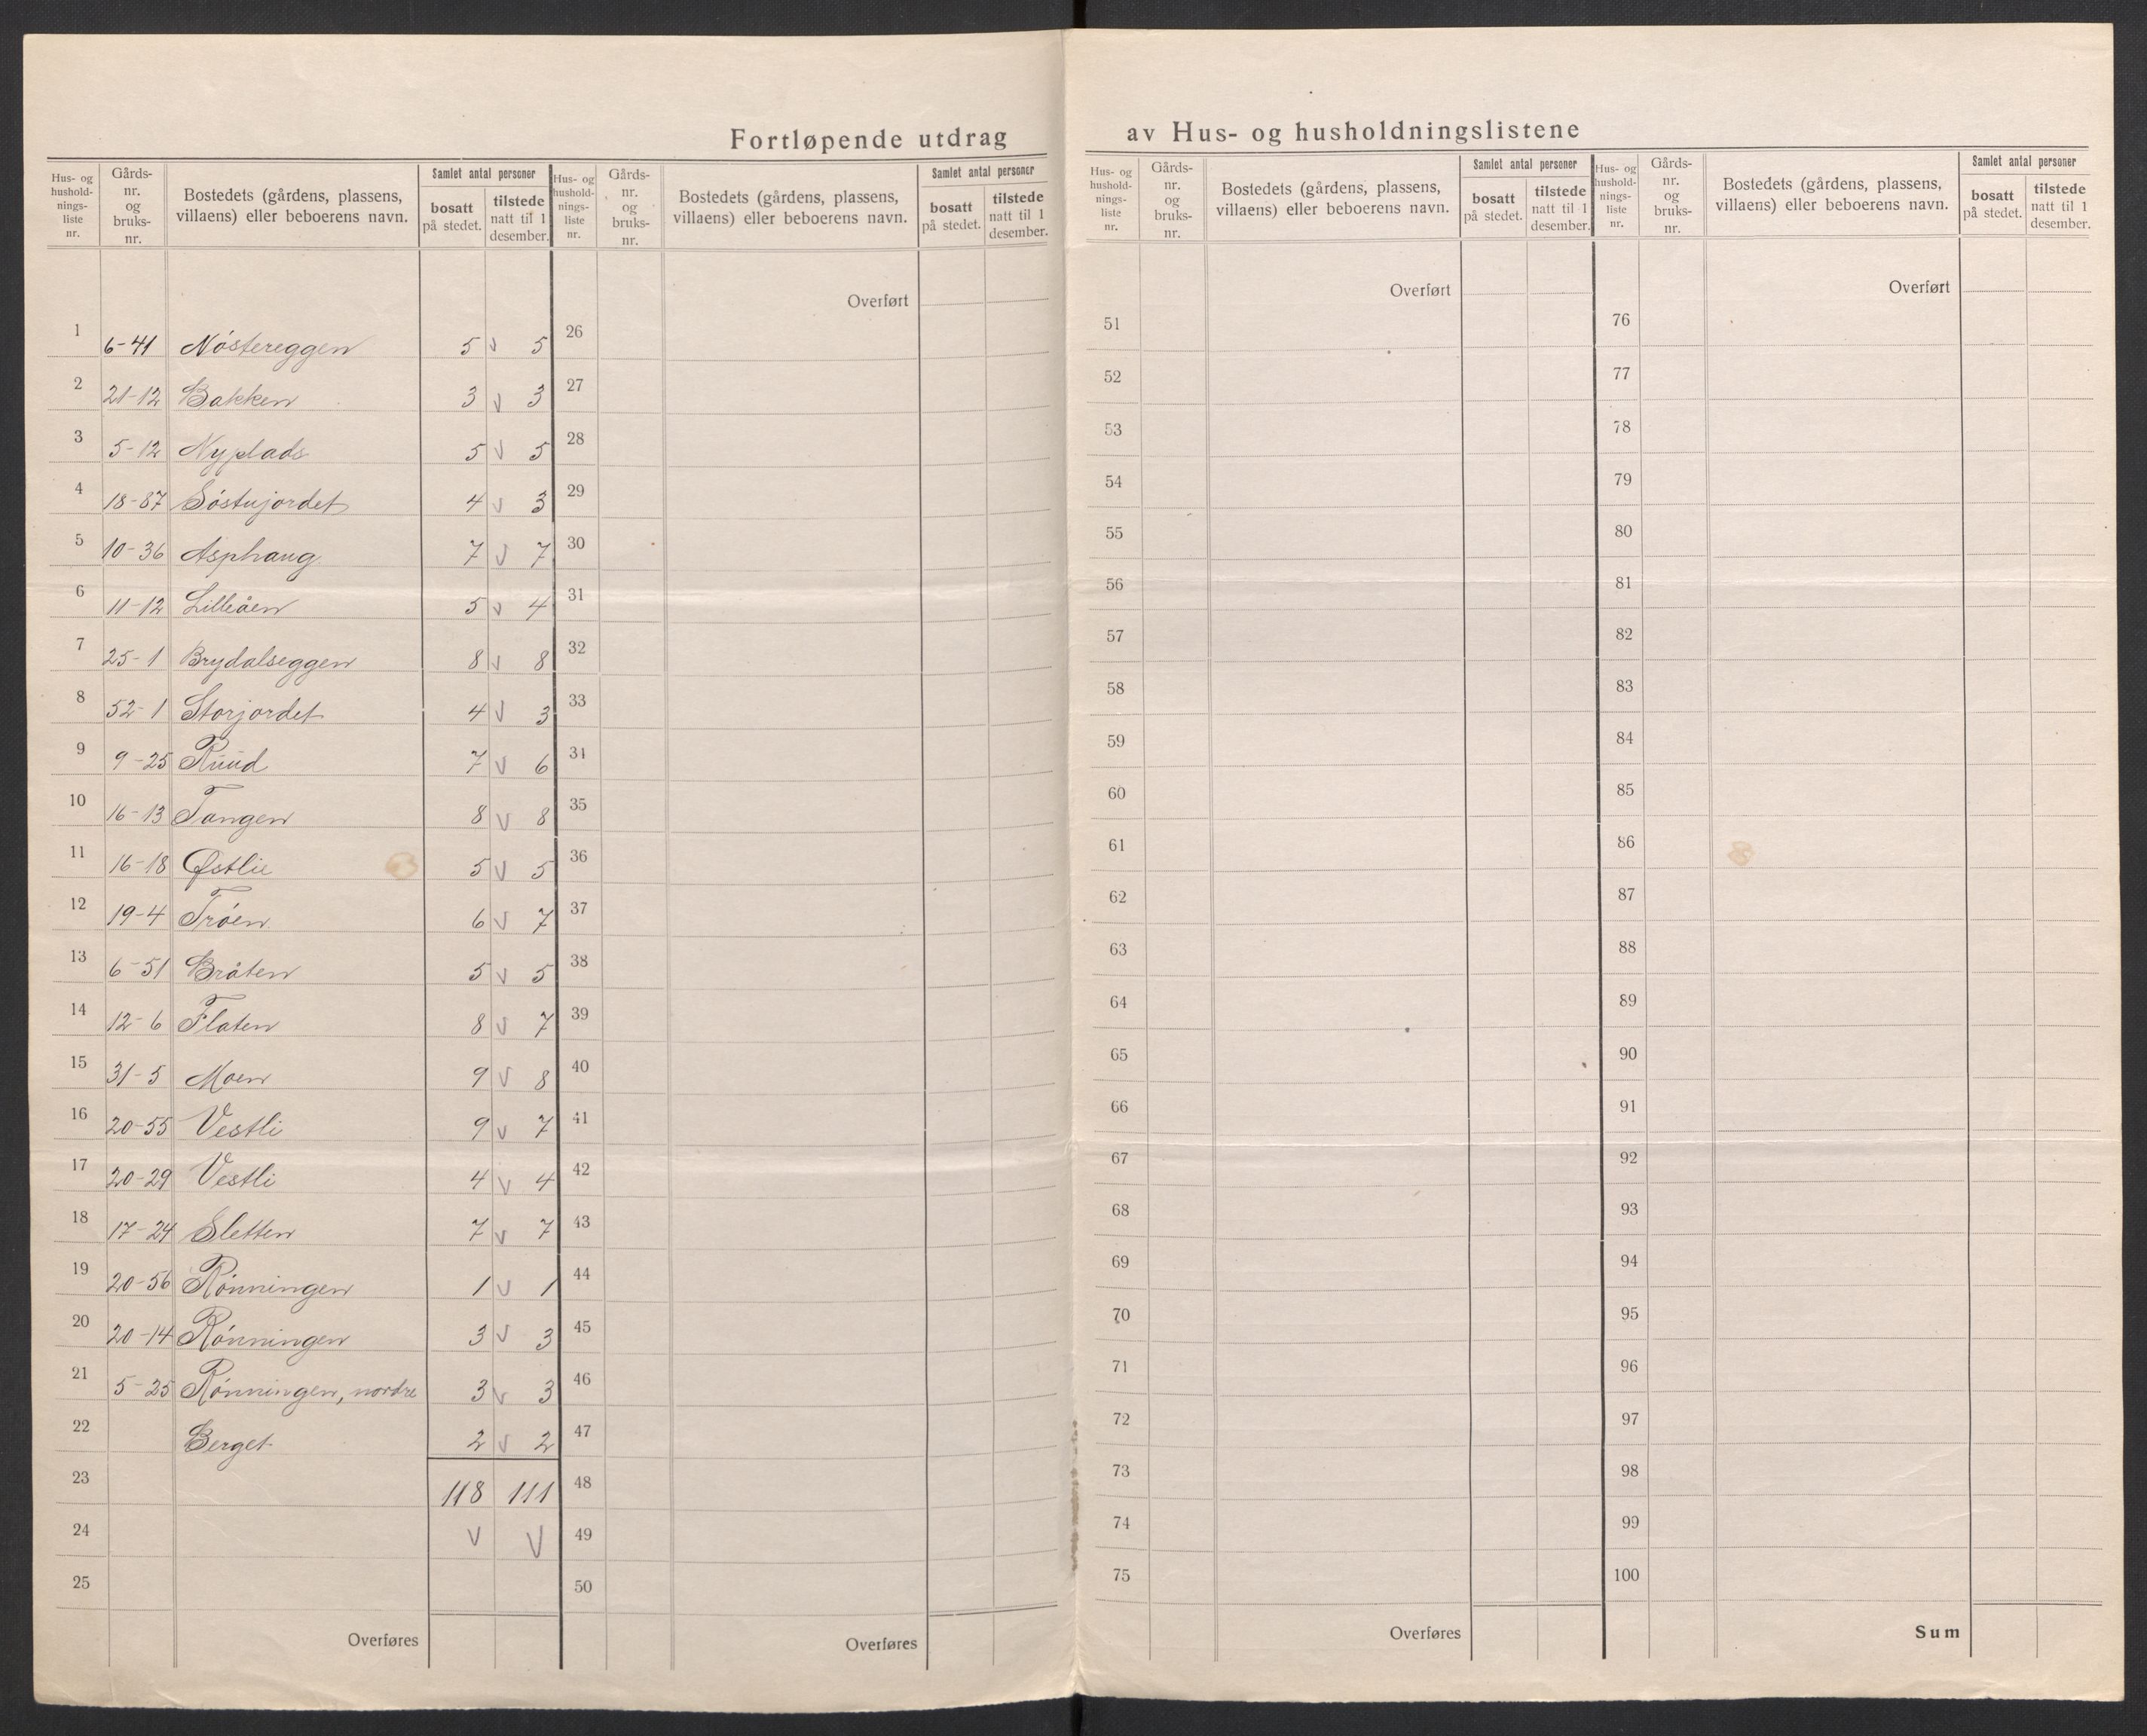 Fortløpende utdrag av Hus- og husholdningslistene
Hus- og hushold-nings-liste nr. Gårds-nr. og bruks-nr. Bostedets (gårdens, plassens, villaens) eller beboerens navn. Samlet antal personer bosatt på stedet. tilstede natt til 1 desember.
Hus- og hushold-nings-liste nr. Gårds-nr. og bruks-nr. Bostedets (gårdens, plassens, villaens) eller beboerens navn. Samlet antal personer bosatt på stedet. tilstede natt til 1 desember.
Hus- og hushold-nings-liste nr. Gårds-nr. og bruks-nr. Bostedets (gårdens, plassens, villaens) eller beboerens navn. Samlet antal personer bosatt på stedet. tilstede natt til 1 desember.
Hus- og hushold-nings-liste nr. Gårds-nr. og bruks-nr. Bostedets (gårdens, plassens, villaens) eller beboerens navn. Samlet antal personer bosatt på stedet. tilstede natt til 1 desember.
1 6-41 Nóstereggen 5 v 5
2 21-12 Bakken 3 v 3
3 5-12 Nyplads 5 v 5
4 18-87 Sóstujordet 4 v 3
5 10-36 Asphaug 7 v 7
6 11-12 Lilleåen 5 v 4
7 25-1 Brydalseggen 8 v 8
8 52-1 Storjordet 4 v 3
9 9-25 Ruud 7 v 6
10 16-13 Tangen 8 v 8
11 16-18 Østlie 5 v 5
12 19-4 Tróen 6 v 7
13 6-51 Bråten 5 v 5
14 12-6 Flaten 8 v 7
15 31-5 Moen 9 v 8
16 20-55 Vestli 9 v 7
17 20-29 Vestli 4 v 4
18 17-24 Sletten 7 v 7
19 20-56 Rónningen 1 v 1
20 20-14 Rónningen 3 v 3
21 5-25 Rónningen, nordre 3 v 3
22 Berget 2 v 2
23 118 111
24 v v
25
Overføres
Overført
26
27
28
29
30
31
32
33
34
35
36
37
38
39
40
41
42
43
44
45
46
47
48
49
50
Overføres
Overført
51
52
53
54
55
56
57
58
59
60
61
62
63
64
65
66
67
68
69
70
71
72
73
74
75
Overføres
Overført
76
77
78
79
80
81
82
83
84
85
86
87
88
89
90
91
92
93
94
95
96
97
98
99
100
Sum